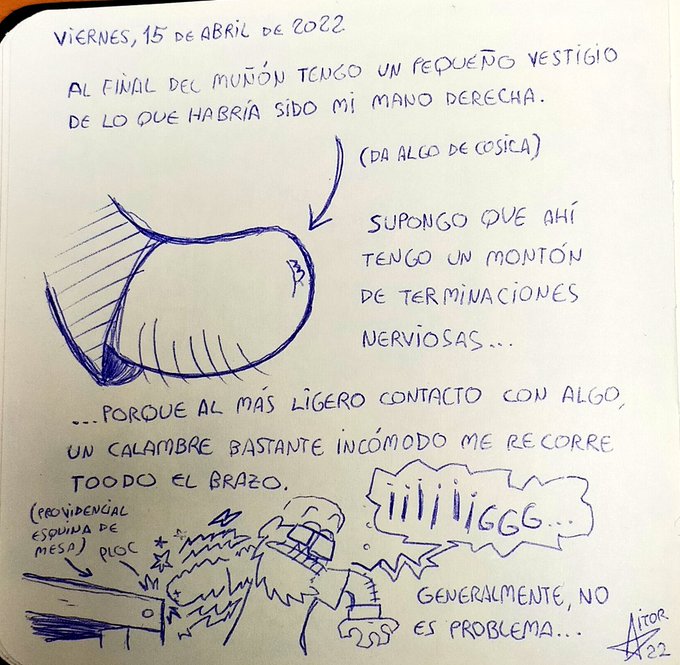 VIERNES, 15 DE ABRIL DE 2022
AL FINAL DEL MUÑÓN TENGO UN PEQUEÑO VESTIGIO
DE LO QUE HABRÍA SIDO MI MANO DERECHA.
(DA ALGO DE COSICA)
SUPONGO QUE AHÍ
TENGO UN MONTÓN
DE TERMINACIONES
NERVIOSAS...
...PORQUE AL MÁS LIGERO CONTACTO CON ALGO,
UN CALAMBRE BASTANTE INCÓMODO ME RECORRE
TOODO EL BRAZO.
(PROVIDENCIAL
ESQUINA DE
MESA)
PLOC
¡¡¡¡¡¡GGG...
GENERALMENTE, NO
ES PROBLEMA...
AITOR
22